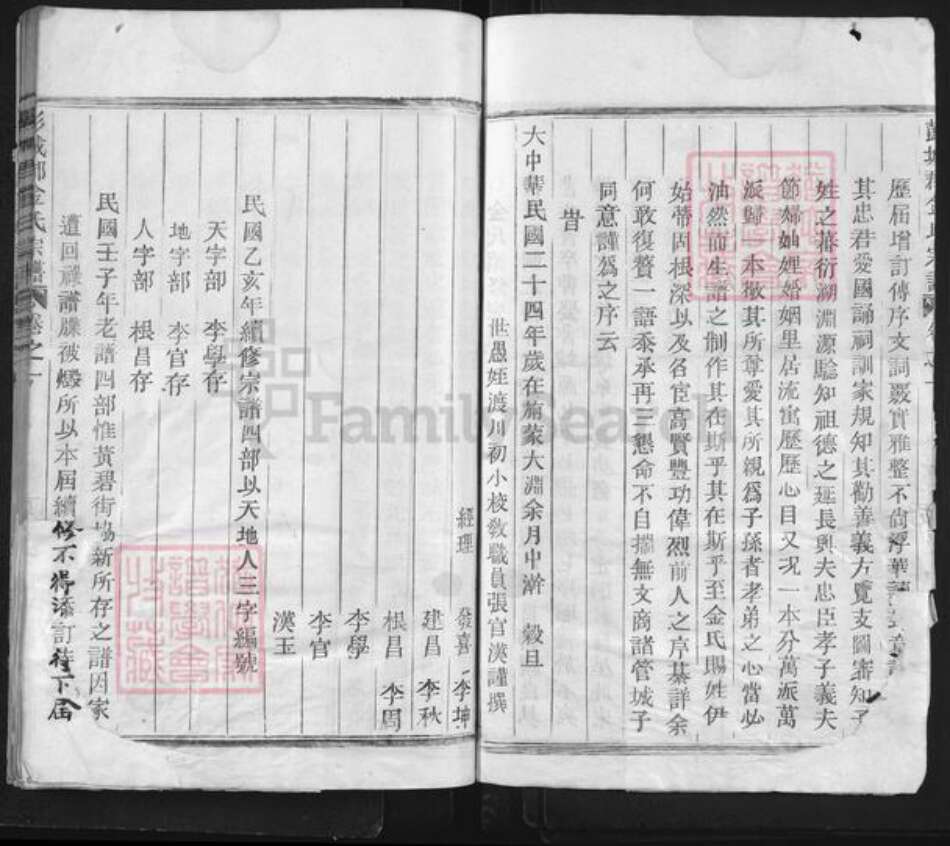 彭城郡金氏宗譜 卷之一
歷屆增訂傳序文詞覈實雅整不尙浮華讀
其忠君愛國誦祠訓家規知其勸善義方覽支圖審知子
姓之蕃衍溯淵源騐知祖德之延長與夫忠臣孝子義夫
節婦妯娌婚姻里居流寓歷歷心目又况一本分萬派萬
派歸一本敬其所尊愛其所親爲子孫者孝弟之心當必
油然而生譜之制作其在斯乎其在斯乎至金氏賜姓伊
始蒂固根深以及名宦高賢豐功偉烈前人之序綦詳余
何敢復贅一語忝承再三懇命不自揣無文商諸管城子
同意謹爲之序云
旹
大中華民國二十四年歲在旃蒙大淵余月中澣 穀旦
世愚姪渡川初小校敎職員張官漢謹撰
經理 發喜 李坤
建昌 李秋
根昌 李周
李學
李官
漢玉
民國乙亥年續修宗譜四部以天地人三字編號
天字部 李學存
地字部 李官存
人字部 根昌存
民國壬子年老譜四部惟黃碧街協新所存之譜因家
遭回祿譜牒被燬所以本屆續修不得添訂待下屆
彭城郡金氏宗譜 卷之一
FamilySearch